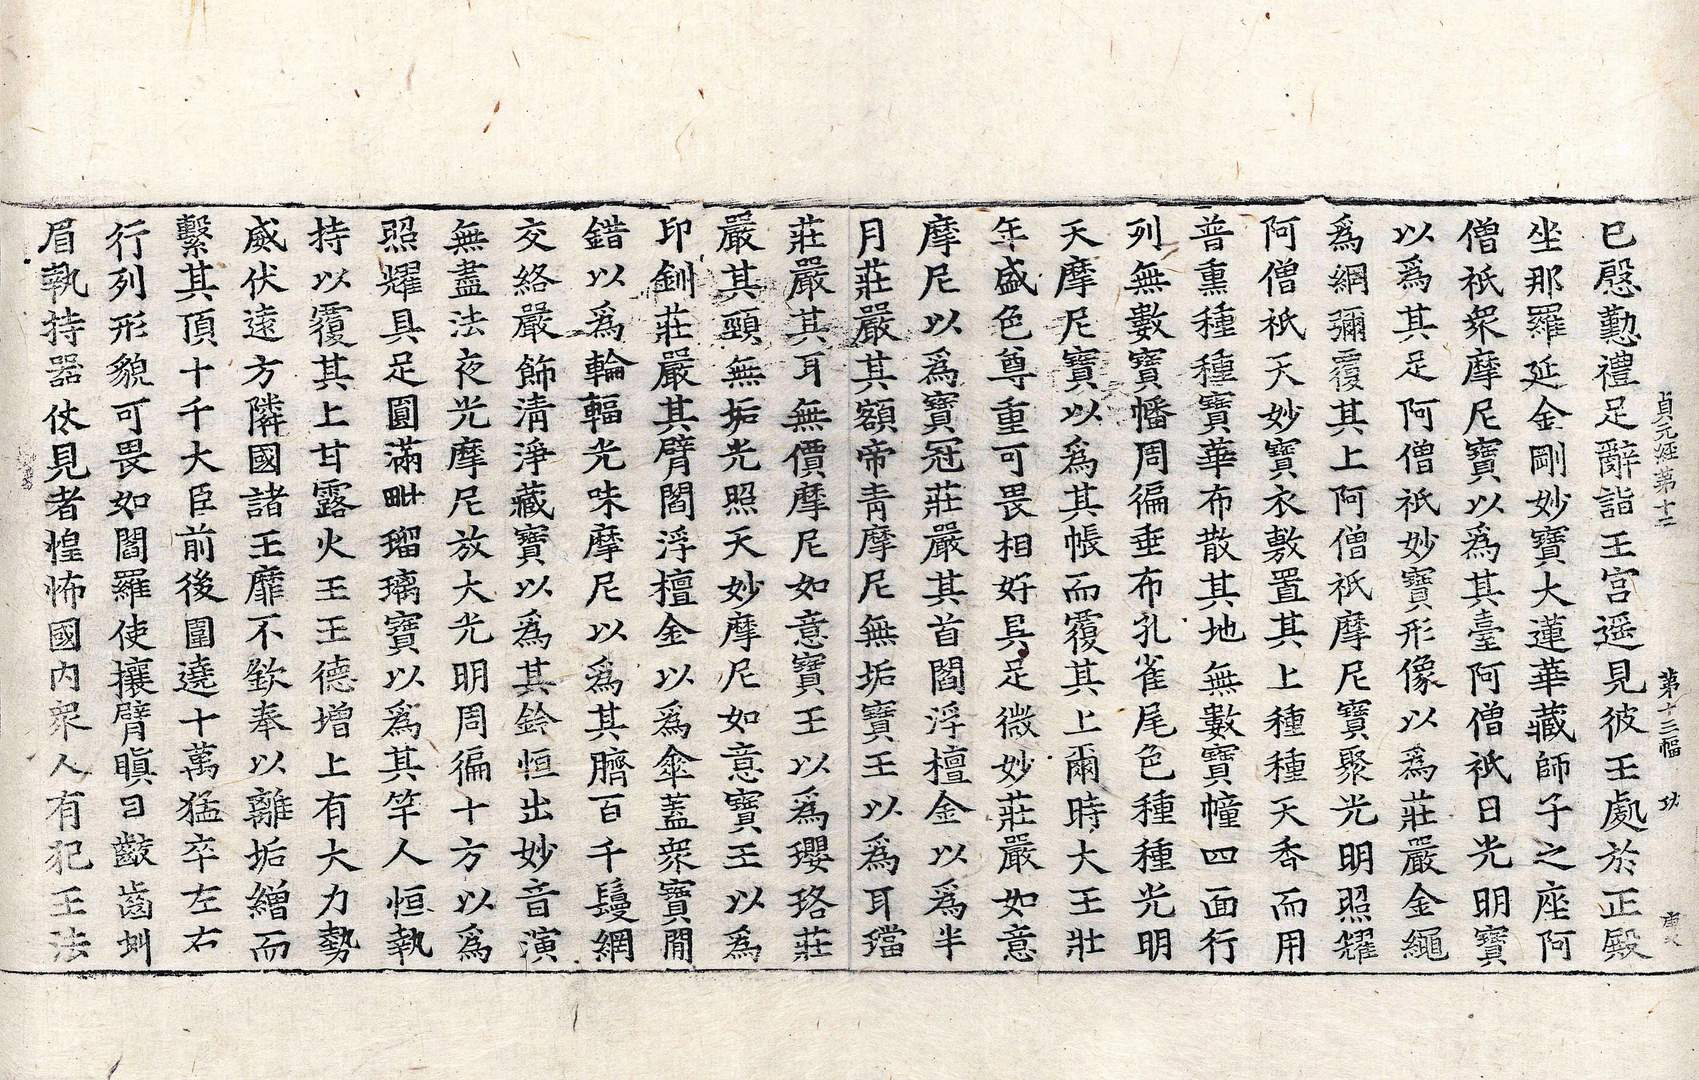 貞元經第十二 第十三幅 功
已慇懃禮足辭詣王宮遥見彼王處於正殿
坐那羅延金剛妙寶大蓮華藏師子之座阿
僧祇衆摩尼寶以爲其臺阿僧祇日光明寶
以爲其足阿僧祇妙寶形像以爲莊嚴金繩
爲網彌覆其上阿僧祇摩尼寶聚光明照耀
阿僧祇天妙寶衣敷置其上種種天香而用
普熏種種寶華布散其地無數寶幢四面行
列無數寶幡周徧垂布孔雀尾色種種光明
天摩尼寶以爲其帳而覆其上爾時大王壯
年盛色尊重可畏相好具足微妙莊嚴如意
摩尼以爲寶冠莊嚴其首閻浮檀金以爲半
月莊嚴其額帝青摩尼無垢寶王以爲耳璫
莊嚴其耳無價摩尼如意寶王以爲瓔珞莊
嚴其頸無垢光照天妙摩尼如意寶王以爲
印釧莊嚴其臂閻浮檀金以爲傘蓋衆寶間
錯以爲輪輻光味摩尼以爲其臍百千鬘網
交絡嚴飾清淨藏寶以爲其鈴恒出妙音演
無盡法夜光摩尼放大光明周徧十方以爲
照耀具足圓滿毗瑠璃寶以爲其竿人恒執
持以覆其上甘露火王王德增上有大力勢
威伏遠方隣國諸王靡不欽奉以離垢繒而
繫其頂十千大臣前後圍遶十萬猛卒左右
行列形貌可畏如閻羅使攘臂瞋目齩齒㘽
眉執持器仗見者惶怖國內衆人有犯王法